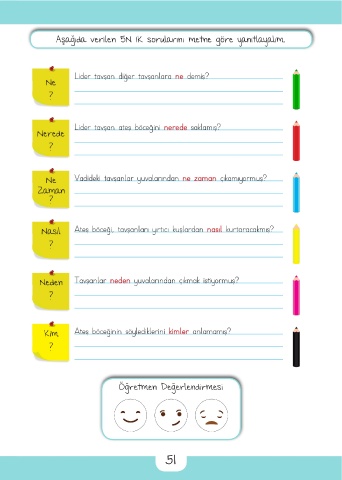 Aşağıda verilen 5N 1K sorularını metne göre yanıtlayalım.
Ne
?
Lider tavşan diğer tavşanlara ne demiş?
Nerede
?
Lider tavşan ateş böceğini nerede saklamış?
Ne
Zaman
?
Vadideki tavşanlar yuvalarından ne zaman çıkamıyormuş?
Nasıl
?
Ateş böceği, tavşanları yırtıcı kuşlardan nasıl kurtaracakmış?
Neden
?
Tavşanlar neden yuvalarından çıkmak istiyormuş?
Kim
?
Ateş böceğinin söylediklerini kimler anlamamış?
Öğretmen Değerlendirmesi
51